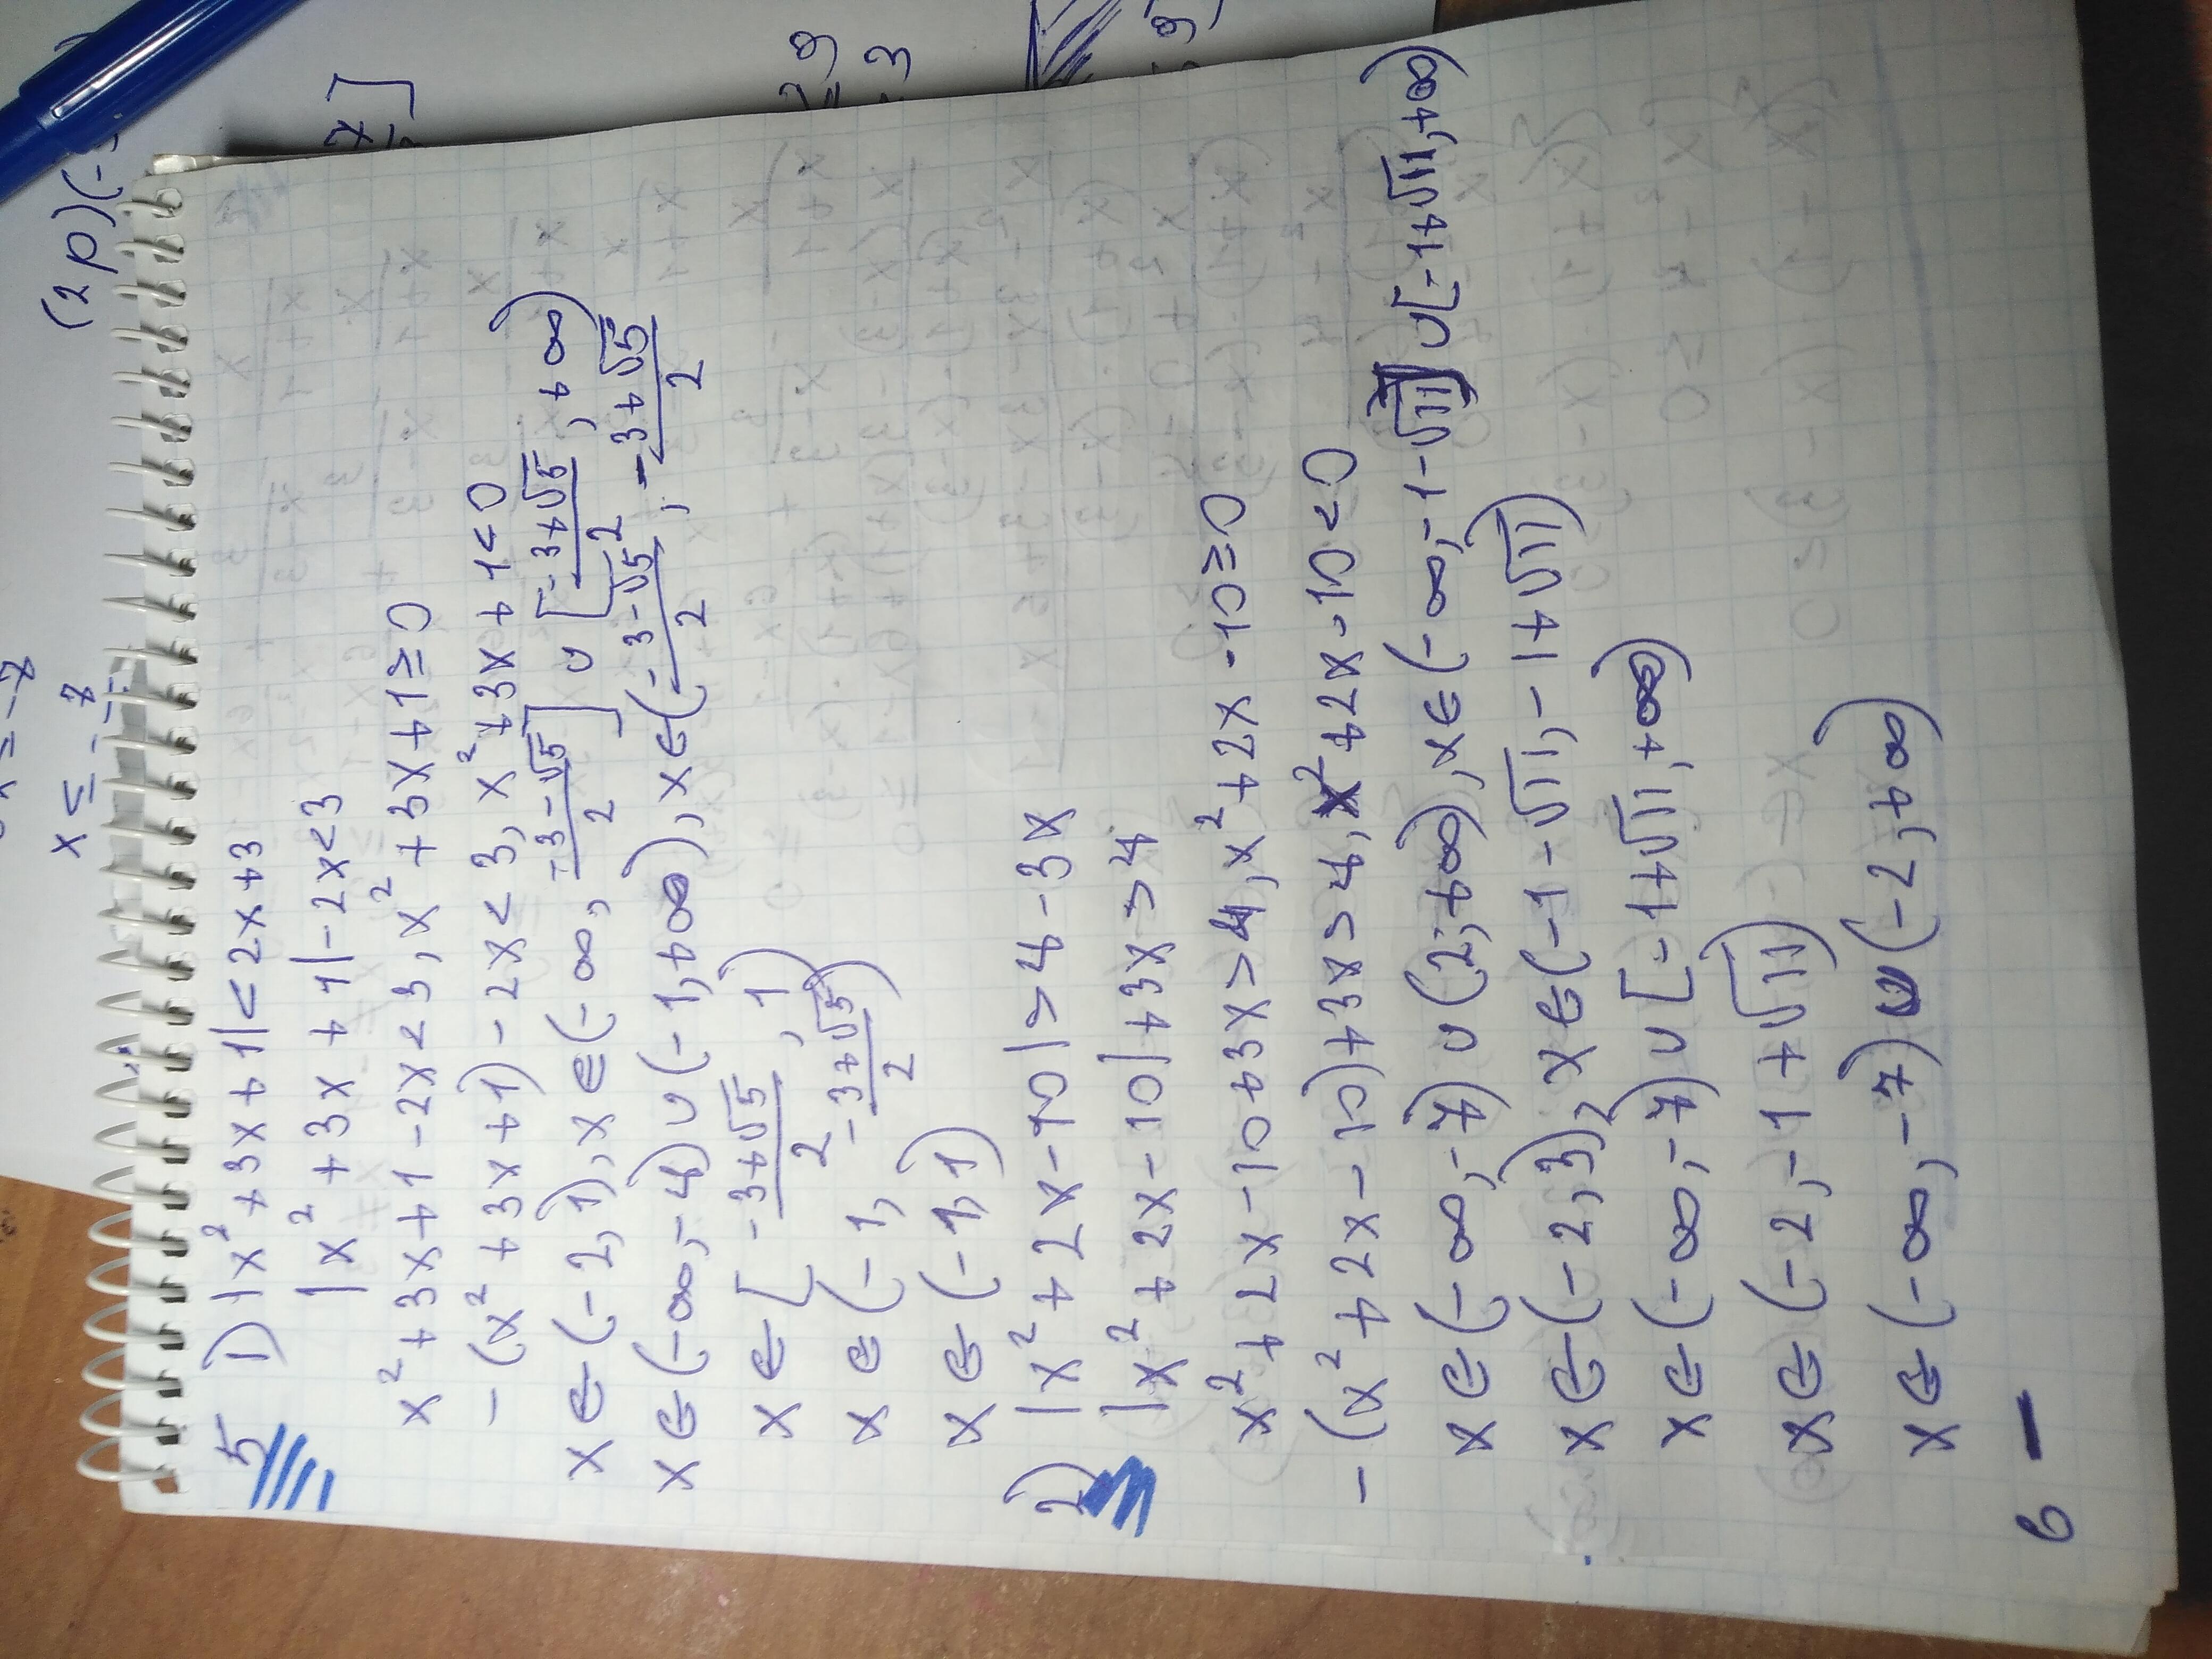 5 1) |x² + 3x + 1| < 2x + 3
|x² + 3x + 1| - 2x < 3
x² + 3x + 1 - 2x < 3, x² + 3x + 1 ≥ 0
-(x² + 3x + 1) - 2x < 3, x² + 3x + 1 < 0
x ∈ (-2, 1), x ∈ (-∞, (-3-√5)/2] ∪ [(-3+√5)/2, +∞)
x ∈ (-∞, -4) ∪ (-1, +∞), x ∈ ((-3-√5)/2, (-3+√5)/2)
x ∈ [(-3+√5)/2, 1)
x ∈ (-1, (-3+√5)/2)
x ∈ (-1, 1)
2) |x² + 2x - 10| > 4 - 3x
|x² + 2x - 10| + 3x > 4
x² + 2x - 10 + 3x > 4, x² + 2x - 10 ≥ 0
-(x² + 2x - 10) + 3x > 4, x² + 2x - 10 < 0
x ∈ (-∞, -7) ∪ (2; +∞), x ∈ (-∞, -1-√11] ∪ [-1+√11, +∞)
x ∈ (-2, 3), x ∈ (-1-√11, -1+√11)
x ∈ (-∞, -7) ∪ [-1+√11, +∞)
x ∈ (-2, -1+√11)
x ∈ (-∞, -7) ∪ (-2, +∞)
6 -
(2p)(-
x ≤